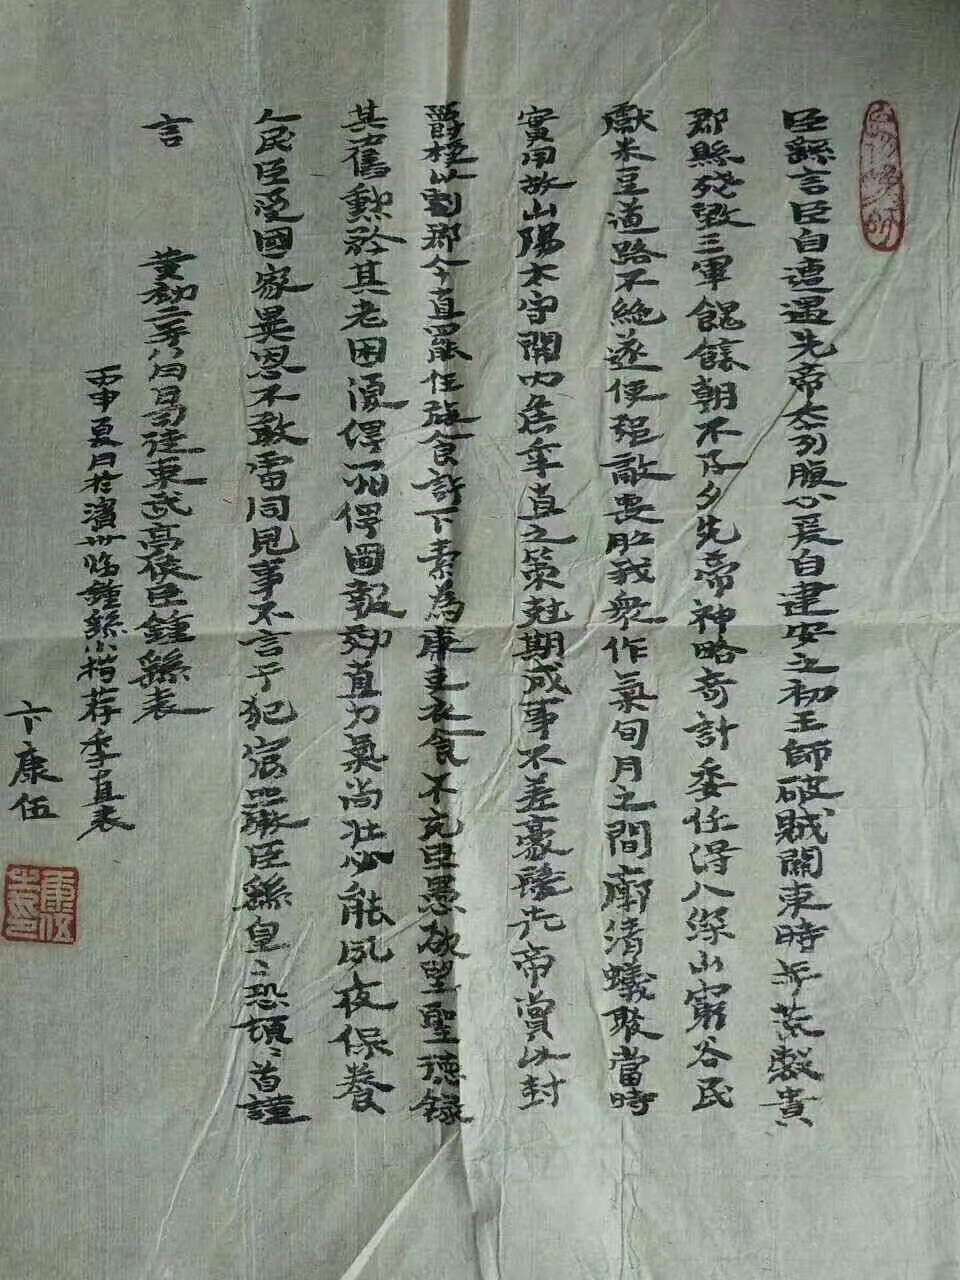 臣繇言臣自遭遇先帝忝列腹心爰自建安之初王師破賊關東時年荒穀貴
郡縣殘毀三軍餽饟朝不及夕先帝神略奇計委任得人深山窮谷民
獻米豆道路不絕遂使強敵喪膽我衆作氣旬月之間廓清蟻聚當時
實用故山陽太守關內侯季直之策剋期成事不差豪髮先帝賞以封
爵授以劇郡今直罷任旅食許下素為廉吏衣食不充臣愚欲望聖德錄
其舊勳矜其老困復俾一州俾圖報効直力氣尚壯必能夙夜保養
人民臣受國家異恩不敢雷同見事不言干犯宸嚴臣繇皇〻恐頓〻首謹
言
黃初二年八月日司徒東武亭侯臣鍾繇表
丙申夏月於濱州臨鍾繇小楷荐季直表
卞康伍